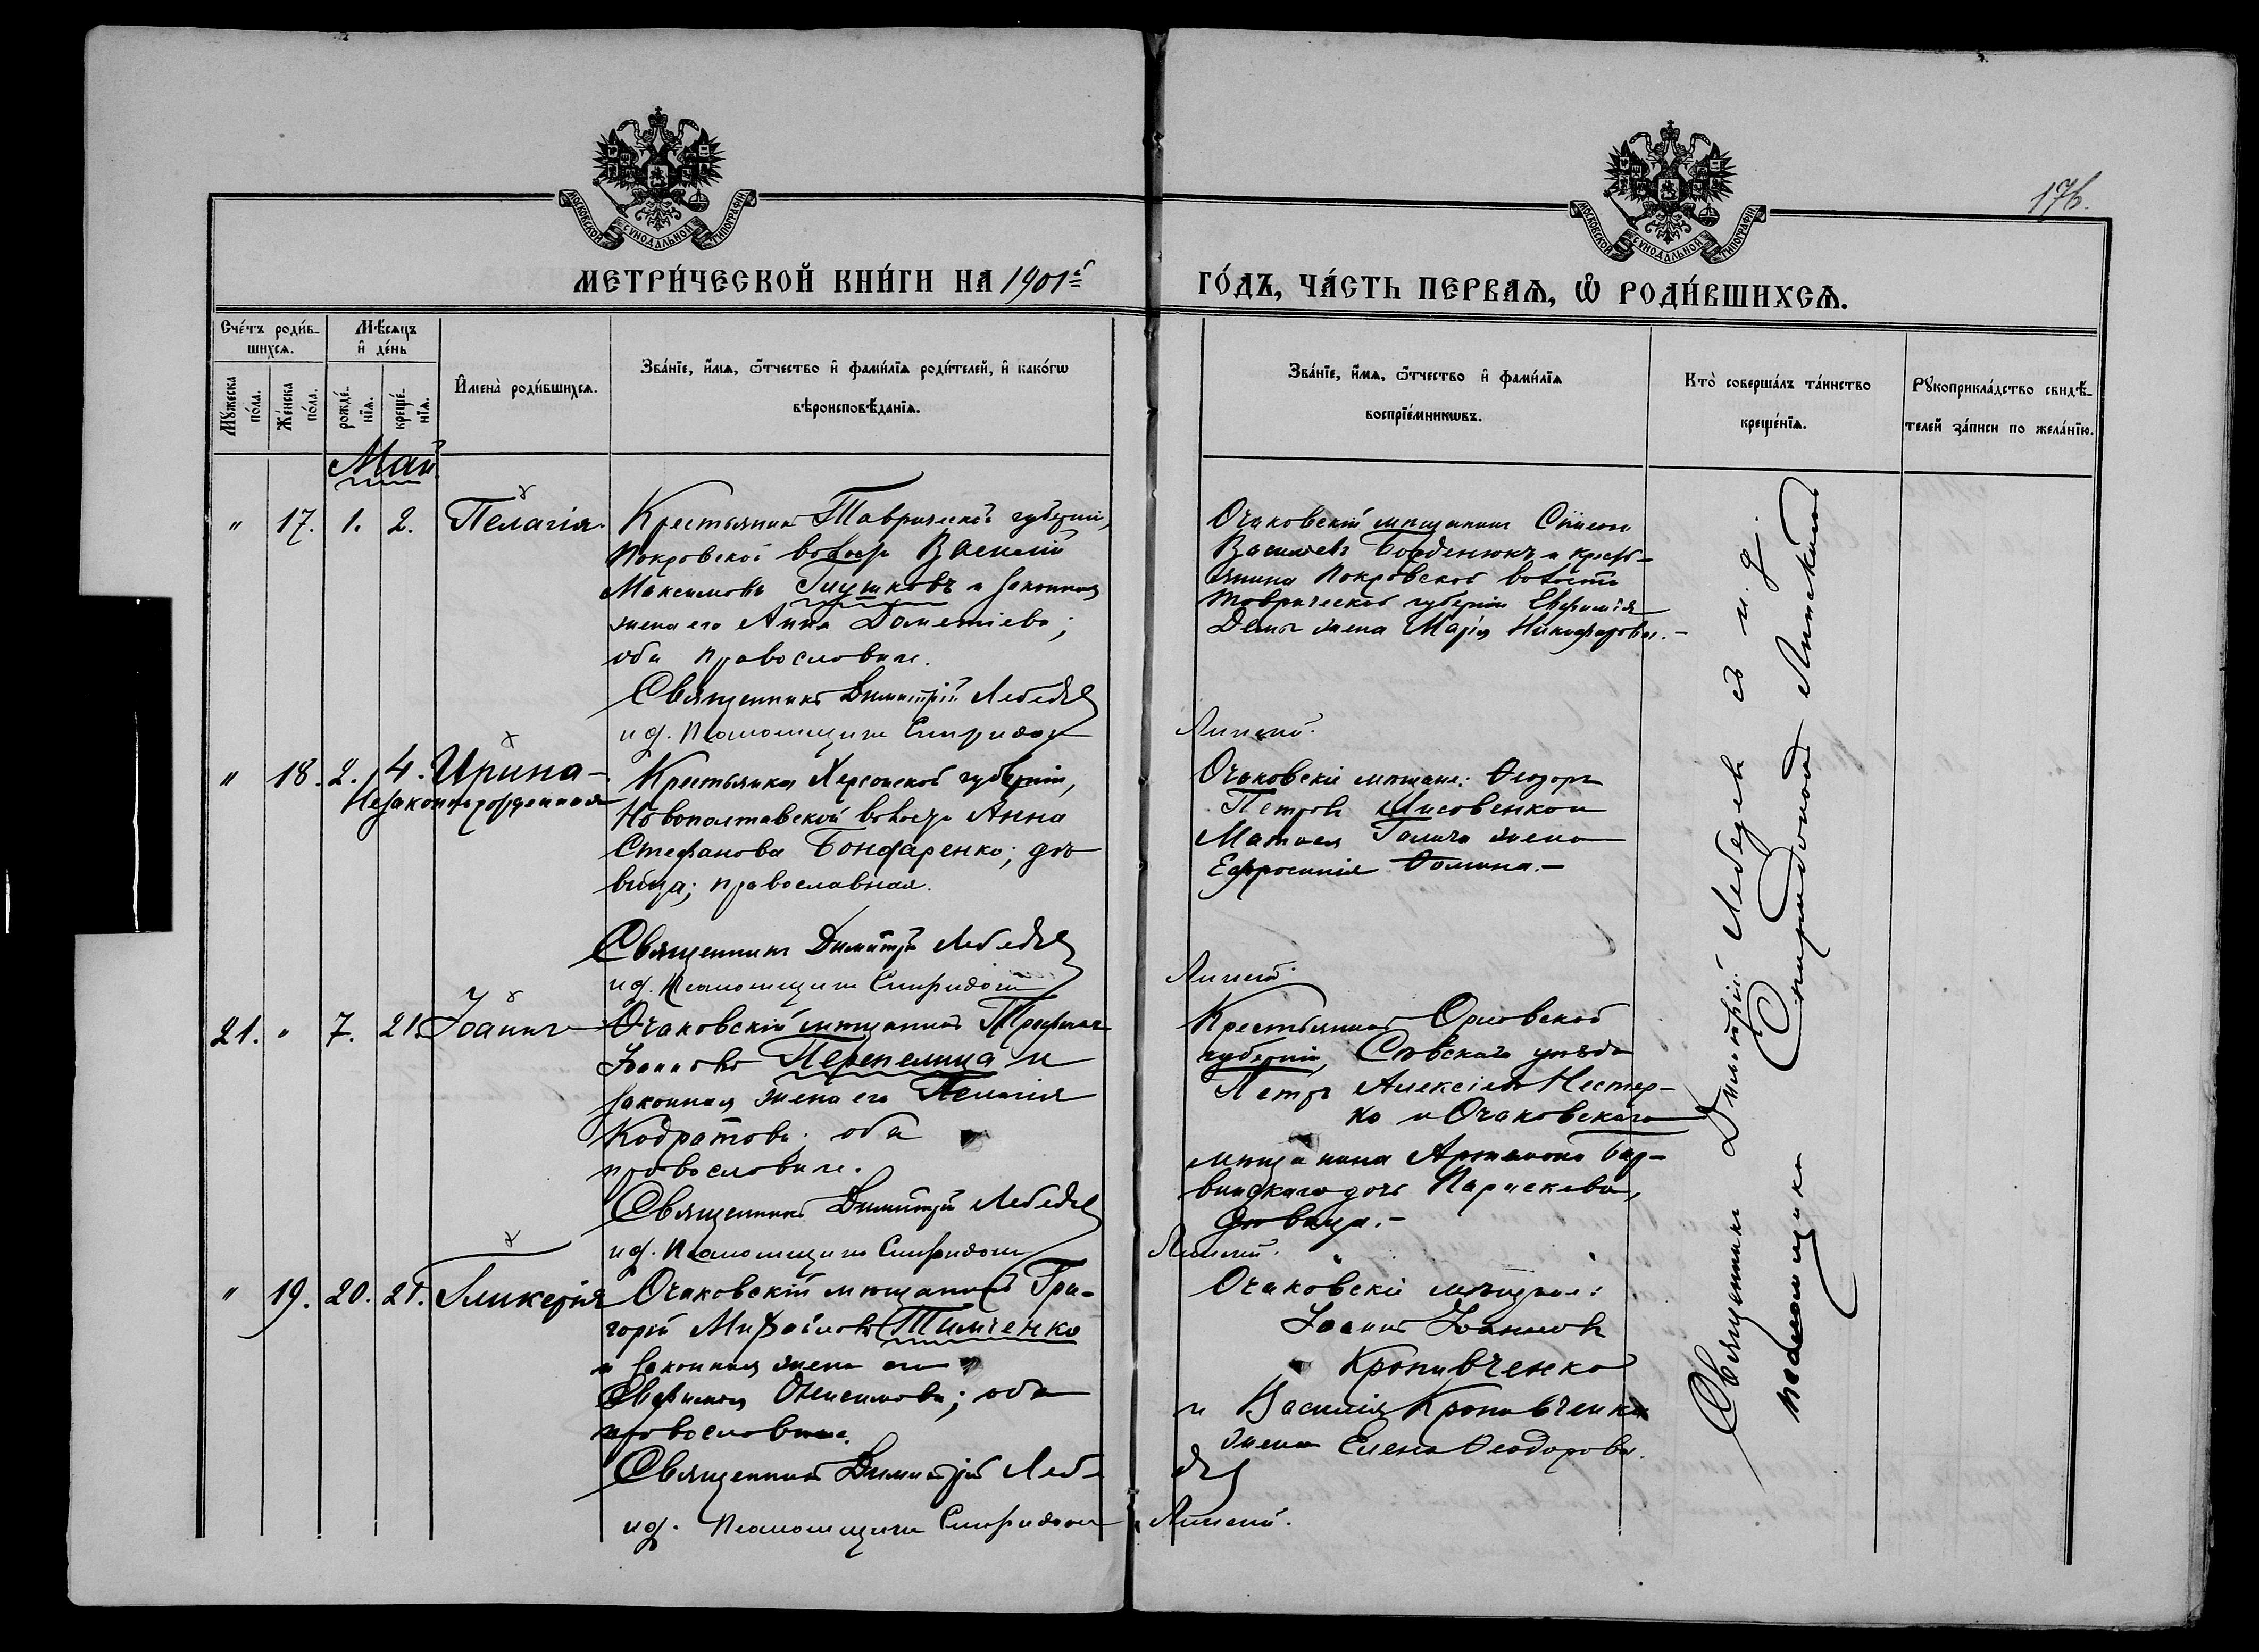 176.
МОСКОВСКОЙ СѴНОДАЛЬНОЙ ТИПОГРАФІИ
МОСКОВСКОЙ СѴНОДАЛЬНОЙ ТИПОГРАФІИ
МЕТРИ́ЧЕСКОЙ КНИ́ГИ НА 1901й
ГО́ДЪ, ЧА́СТЬ ПЕРВАѦ, Ѡ РОДИ́ВШИХСѦ.
Сче́тъ роди́в-
шихсѧ.
Мѣсѧцъ
и де́нь
Мꙋжеска
по́ла.
Же́нска
по́ла.
рожде́-
нїѧ.
креще́-
нїѧ.
Имена̀ роди́вшихсѧ.
Зва́нїе, и́мѧ, ѿтчество и фами́лїѧ роди́телей, и како́гѡ
вѣроисповѣ́данїѧ.
Зва́нїе, и́мѧ, ѿтчество и фами́лїѧ
воспрїе́мникѡвъ.
Кто̀ соверша́лъ та́инство
креще́нїѧ.
Рꙋкоприкла́дство свидѣ́-
телей за́писи по жела́нїю.
Май
" 17. 1. 2. Пелагія
Крестьянинъ Таврической губерніи,
Покровской волости Василій
Максимовъ Глушковъ и законная
жена его Анна Дометіева;
оба православные.
Священникъ Димитрій Лебедевъ
и.д. Псаломщика Спиридонъ
Очаковскій мѣщанинъ Сѵмеонъ
Васильевъ Борденюкъ и кресть-
янина Покровской волости
Таврической губерніи Евфимія
жена Марія Никифорова.-
Липскій.
" 18. 2. 4. Ирина
Незаконнорожденная
Крестьянка Херсонской губерніи,
Новополтавской волости Анна
Стефанова Бондаренко; дѣ-
вица; православная.
Священникъ Димитрій Лебедевъ
и.д. Псаломщика Спиридонъ
Очаковскіе мѣщане: Ѳеодоръ
Петровъ Лисовенко и
Матѳея Галича жена
Ефросинія Ѳомина.-
Липскій.
21. " 7. 21. Іоаннъ
Очаковскій мѣщанинъ Трофимъ
Іоанновъ Перепелица и
законная жена его Пелагія
Кодратова; оба
православные.
Священникъ Димитрій Лебедевъ
и.д. Псаломщика Спиридонъ
Крестьянинъ Орловской
губерніи, Сѣвскаго уѣзда
Петръ Алексіевъ Нестер-
ко и Очаковскаго
мѣщанина Артамона Бар-
винскаго дочь Параскева,
дѣвица.-
Липскій.
" 19. 20. 21. Гликерія
Очаковскій мѣщанинъ Гри-
горій Михайловъ Тимченко
и законная жена его
Евфимія Онисимова; оба
православные.
Священникъ Димитрій Лебе-
и.д. Псаломщика Спиридонъ
Очаковскіе мѣщане:
Іоаннъ Іоанновъ
Кропивченко
и Василія Кропивченко
жена Елена Ѳеодорова.
девъ
Липскій.
Священникъ Димитрій Лебедевъ съ и. д.
псаломщика Спиридономъ Липскимъ